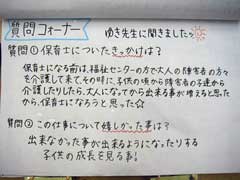 質問コーナー
ゆき先生に聞きました
質問① 保育士についたきっかけは?
保育士になる前は、福祉センターの方で大人の障害者の方々
を介護して来て、その時に子供の頃から障害者の子達から
介護したりしたら、大人になってから出来る事が増えると思った
から、保育士になろうと思った☆
質問② この仕事について嬉しかった事は?
出来なかった事が出来るようになったりする
子供の成長を見る事!